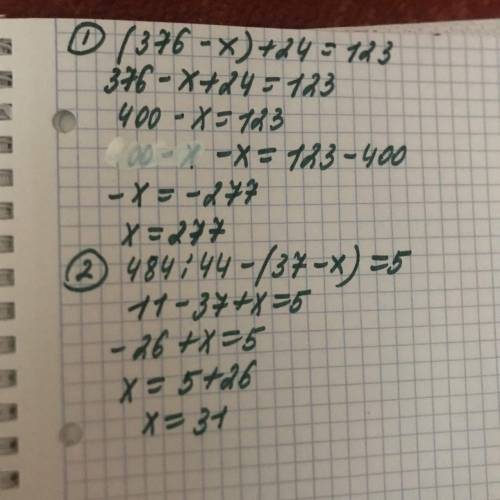 ① (376 - x) + 24 = 123
376 - x + 24 = 123
400 - x = 123
- x = 123 - 400
- x = - 277
x = 277
② 484 : 44 - (37 - x) = 5
11 - 37 + x = 5
- 26 + x = 5
x = 5 + 26
x = 31